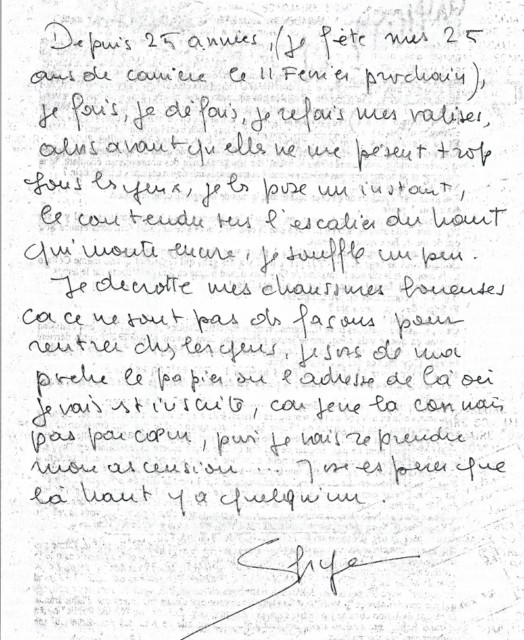 Depuis 25 années, (je fête mes 25
ans de carrière le 11 Fevrier prochain),
je fais, je défais, je refais mes valises,
alors avant qu'elle ne me pèsent trop
sous les yeux, je les pose un instant,
le cou tendu vers l'escalier du haut
qui monte encore, je souffle un peu.
Je decrotte mes chaussures boueuses
ca ce ne sont pas des façons pour
rentrer chez les gens, je sors de ma
poche le papier ou l'adresse de là où
je vais est inscrite, car je ne la connais
pas par cœur, puis je vais reprendre
mon ascension ... J'ose espérer que
là haut y a quelqu'un.